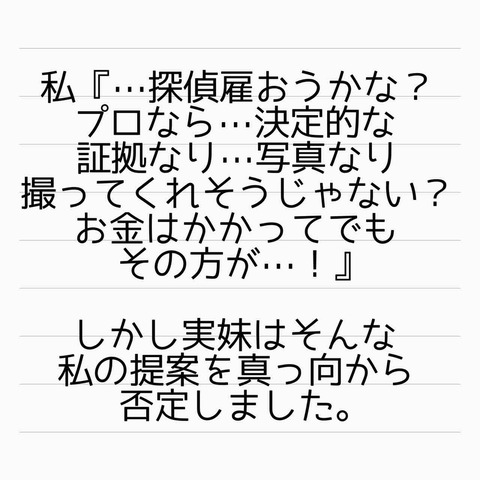 私『…探偵雇おうかな？
プロなら…決定的な
証拠なり…写真なり
撮ってくれそうじゃない？
お金はかかってでも
その方が…！』
しかし実妹はそんな
私の提案を真っ向から
否定しました。